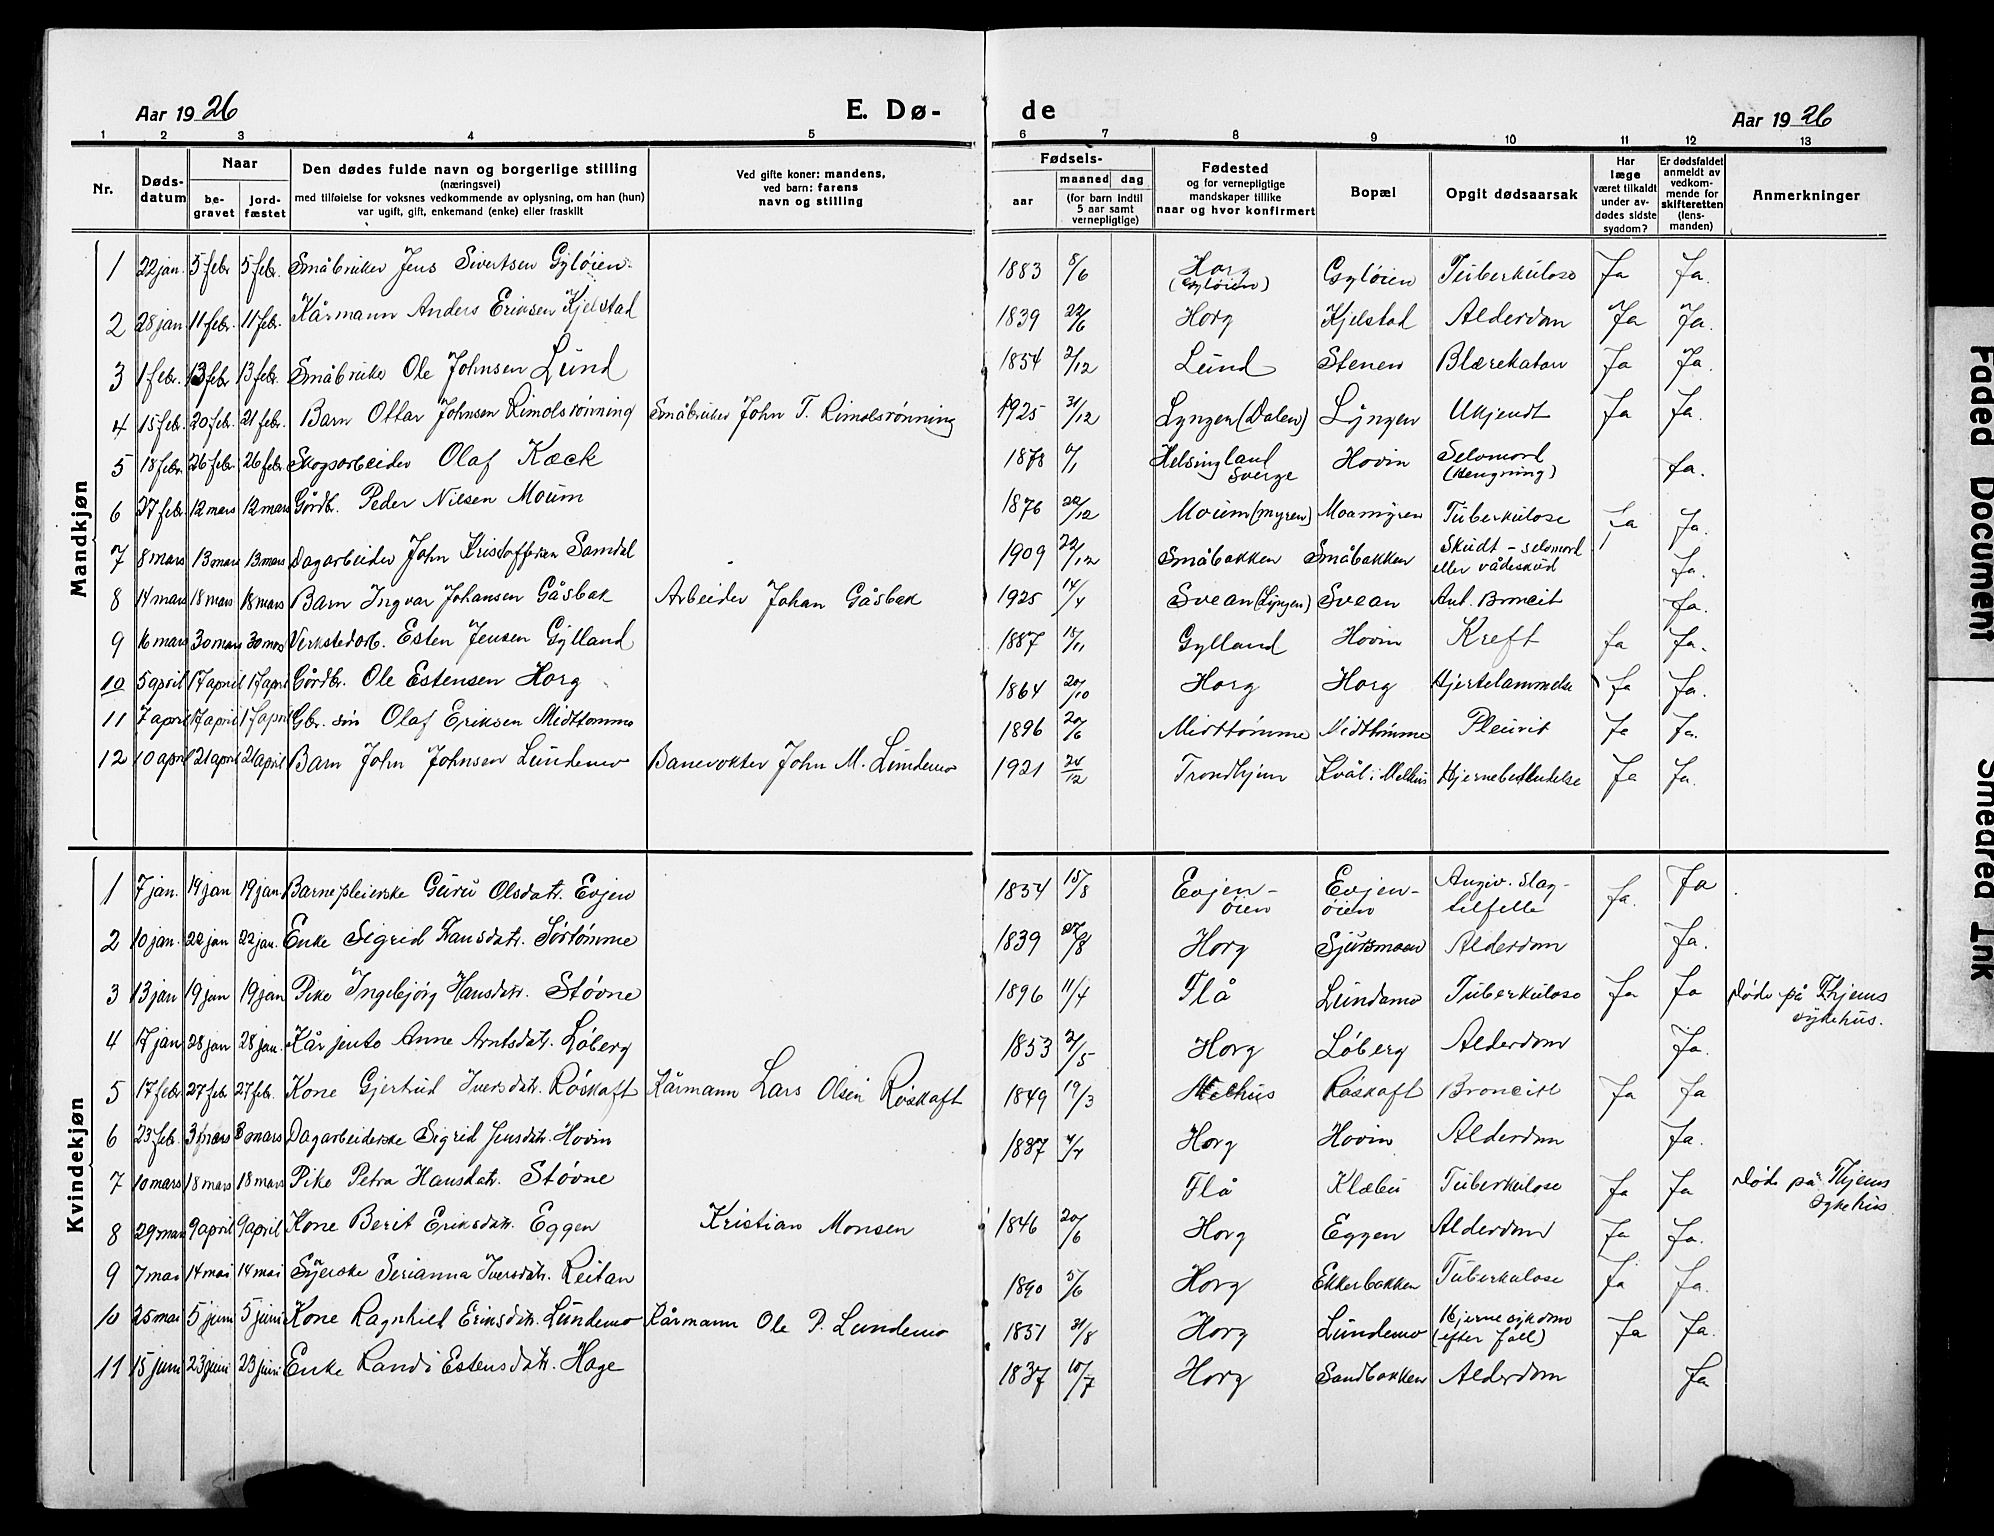 Aar 1926 E. Dø- de Aar 1926
1 2 3 4 5 6 7 8 9 10 11 12 13
Nr. Døds-datum Naar be-gravet jord-fæstet
Den dødes fulde navn og borgerlige stilling
(næringsvei)
med tilføielse for voksnes vedkommende av oplysning, om han (hun)
var ugift, gift, enkemand (enke) eller fraskilt
Ved gifte koner: mandens,
ved barn: farens
navn og stilling
Fødsels-
aar maaned dag
(for barn indtil
5 aar samt
vernepligtige)
Fødested
og for vernepligtige
mandskaper tillike
naar og hvor konfirmert
Bopæl
Opgit dødsaarsak
Har
læge
været tilkaldt
under av-
dødes sidste
sygdom?
Er dødsfaldet
anmeldt av
vedkom-
mende for
skifteretten
(lens-
manden)
Anmerkninger
Mandkjøn
1 22 jan. 5 febr 5 febr. Småbruker Jens Sivertsen Gyløien. 1883 8/6 Horg (Gyløien) Gyløien Tuberkulose Ja Ja.
2 28 jan. 11 febr. 11 febr. Kårmann Anders Eriksen Kjelstad 1839 22/6 Horg Kjelstad Alderdom Ja Ja.
3 1 febr. 13 febr 13 febr. Småbruker Ole Johnsen Lund 1854 2/12 Lund Stenen Blærekatar Ja Ja.
4 15 febr. 20 febr. 21 febr. Barn Ottar Johnsen Rimolsrønning Småbruker John T. Rimolsrønning 1925 31/12 Lyngen (Dalen) Lyngen Ukjendt Ja Ja.
5 18 febr. 26 febr. 26 febr. Skogsarbeider Olaf Kæck 1878 /1 Helsingland Sverge Hovin Selvmord (Hengning) Ja.
6 27 febr. 12 mars 12 mars Gårdbr. Peder Nilsen Moum 1876 22/12 Moum (myren) Moamyren Tuberkulose Ja Ja.
7 8 mars 13 mars 13 mars Dagarbeider John Kristoffersen Samdal 1909 22/12 Småbakken Småbakken Skudt - selvmord eller vådeskud Ja.
8 14 mars 18 mars 18 mars Barn Ingvar Johansen Gåsbak Arbeider Johan Gåsbak 1925 14/4 Svean (Lyngen) Svean Ant. Broncit Ja.
9 16 mars 30 mars 30 mars Verkstedarb. Esten Jensen Gylland 1887 18/11 Gylland Hovin Kreft Ja Ja.
10 5 april 17 april 17 april Gårdbr. Ole Estensen Horg 1864 20/10 Horg Horg Hjertelammelse Ja Ja.
11 7 april 17 april 17 april Gbr. søn Olaf Eriksen Midttømme 1896 20/6 Midttømme Midttømme Pleurit Ja Ja.
12 10 april 21 april 21 april Barn John Johnsen Lundemo Banevokter John M. Lundemo 1921 /12 Trondhjem Kvål i Melhus Hjernebetendelse Ja Ja.
Kvindekjøn
1 7 jan. 19 jan 19 jan. Barnepleierske Guru Olsdatr. Evjen 1834 15/8 Evjen-øien Evjen-øien Angiv. slag-tilfelle Ja. Ja
2 10 jan. 22 jan 22 jan. Enke Sigrid Hansdatr. Sørtømme 1839 27/8 Horg Sjursmoen Alderdom Ja.
3 13 jan 19 jan 19 jan Pike Ingebjørg Hansdatr. Støvne 1896 11/4 Flå Lundamo Tuberkulose Ja Ja Døde på Thjems sykehus.
4 17 jan 28 jan 28 jan. Kårjente Anne Arntsdatr. Løberg 1853 2/5 Horg Løberg Alderdom Ja.
5 17 febr 27 febr 27 febr. Kone Gjertrud Iversdatr. Røskaft Kårmann Lars Olsen Røskaft 1849 19/3 Melhus Røskaft Broncitt Ja Ja
6 23 feb. 3 mars 3 mars Dagarbeiderske Sigrid Jensdatr. Hovin 1837 4/7 Horg Hovin Alderdom Ja.
7 10 mars 18 mars 18 mars Pike Petra Hansdatr. Støvne Flå Klæbu Tuberkulose Ja Ja Døde på Thjems Sykehus
8 29 mars 9 april 9 april Kone Berit Eriksdatr. Eggen Kristian Monsen 1846 20/6 Horg Eggen Alderdom Ja Ja.
9 7 mai 14 mai 14 mai Syerske Serianna Iversdatr. Reitan 1890 5/6 Horg Ekkerbakken Tuberkulose Ja Ja.
10 25 mai 5 juni 5 juni Kone Ragnhild Eriksdatr. Lundemo Kårmann Ole P. Lundemo 1851 31/8 Horg Lundemo Hjernesykdom (efter fall) Ja Ja.
11 15 juni 23 juni 23 juni Enke Randi Estensdatr. Hage 1837 10/7 Horg Sandbakken Alderdom Ja
Faded Document
Smeared Ink